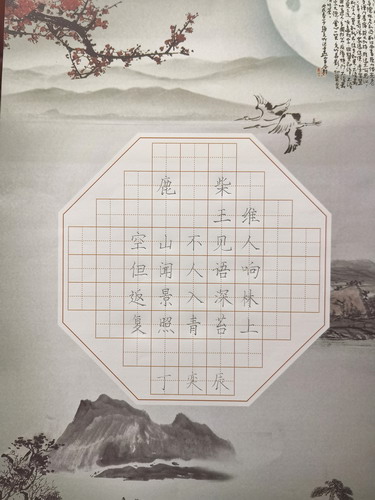 鹿柴
王维
空山不见人
但闻人语响
返景入深林
复照青苔上
丁奕辰